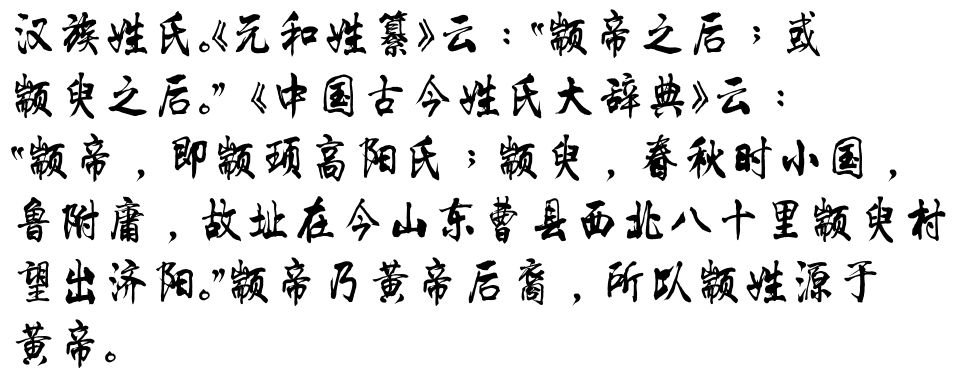 汉族姓氏。《元和姓纂》云：“颛帝之后；或
颛臾之后。”《中国古今姓氏大辞典》云：
“颛帝，即颛顼高阳氏；颛臾，春秋时小国，
鲁附庸，故址在今山东曹县西北八十里颛臾村
望出济阳。”颛帝乃黄帝后裔，所以颛姓源于
黄帝。